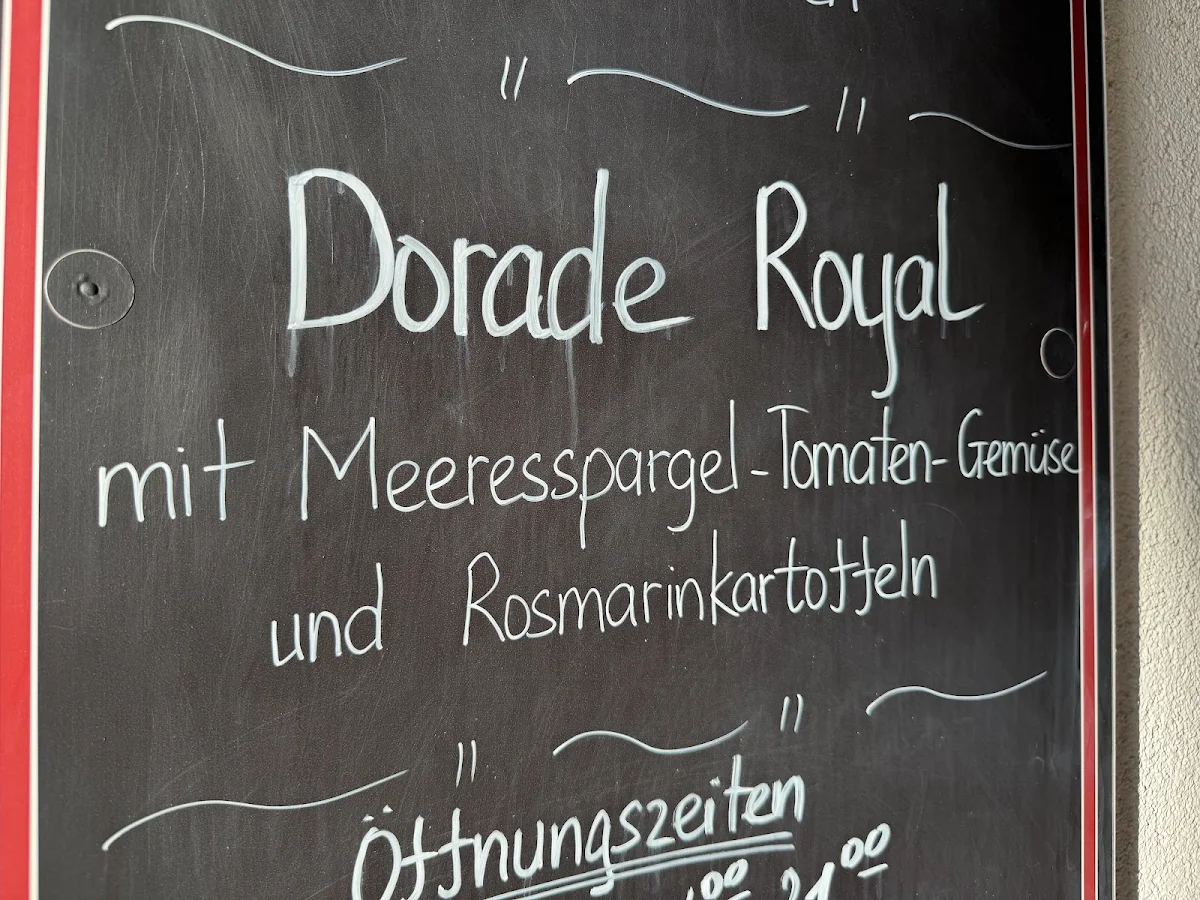 Dorade Royal
mit Meeresspargel-Tomaten-Gemüse
und Rosmarinkartoffeln
Öffnungszeiten